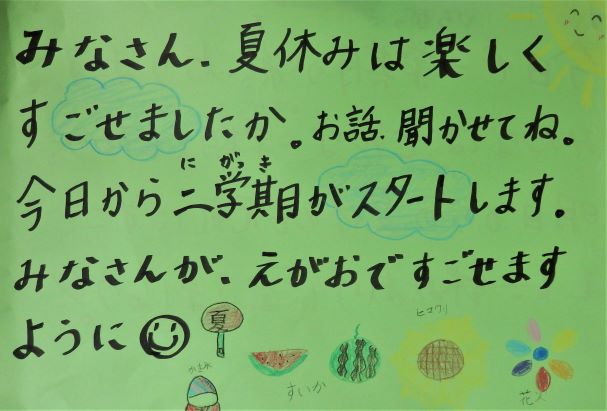 みなさん、夏休みは楽しく
すごせましたか。お話、聞かせてね。
にがっき
今日から二学期がスタートします。
みなさんが、えがおですごせます
ように
夏
ヒマワリ
すいか